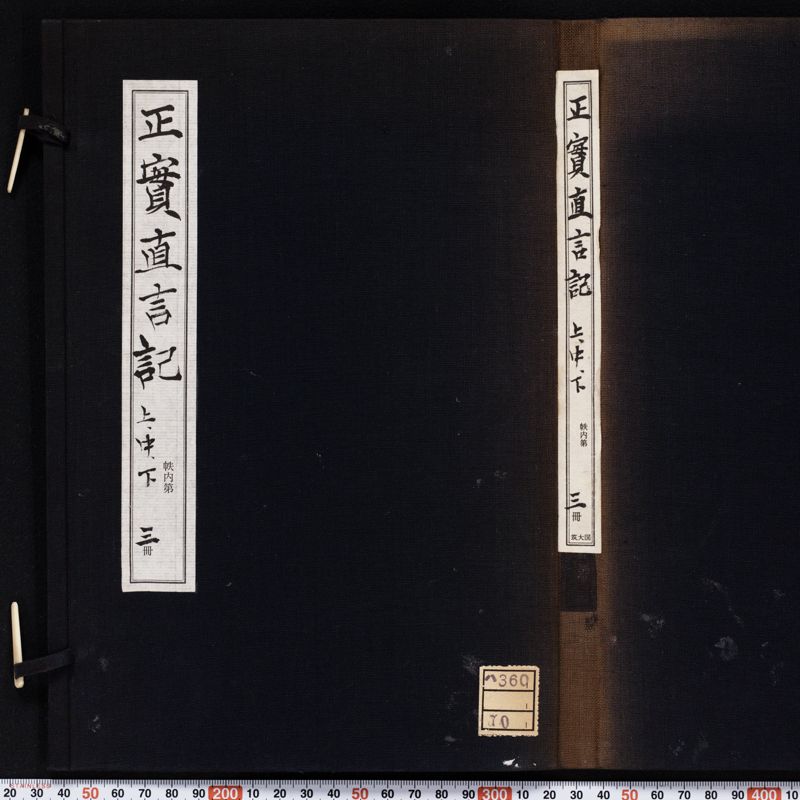 正實直言記 上、中、下
帙内第
三冊
正實直言記 上、中、下
帙内第
三冊
筑大図
ハ360
70
STAINLESS
20 30 40 50 60 70 80 90 200 10 20 30 40 50 60 70 80 90 300 10 20 30 40 50 60 70 80 90 400 10